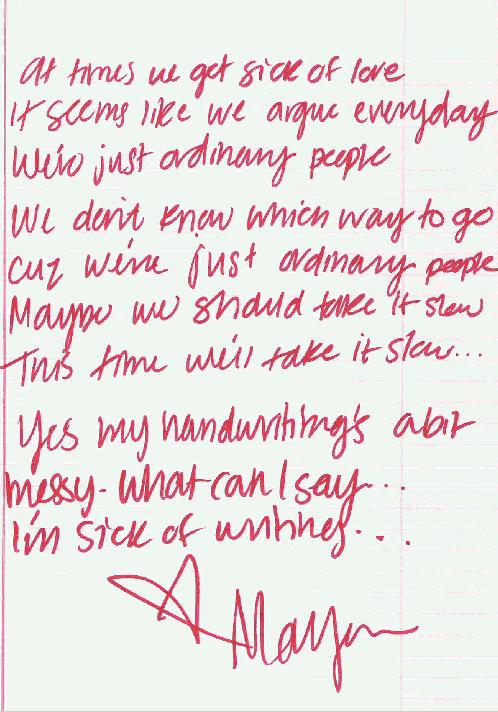 At times we get sick of love
It seems like we argue everyday
We're just ordinary people
We don't know which way to go
cuz we're just ordinary people
Maybe we should take it slow
This time we'll take it slow...
Yes my handwriting's a bit
messy. What can I say...
I'm sick of writing...